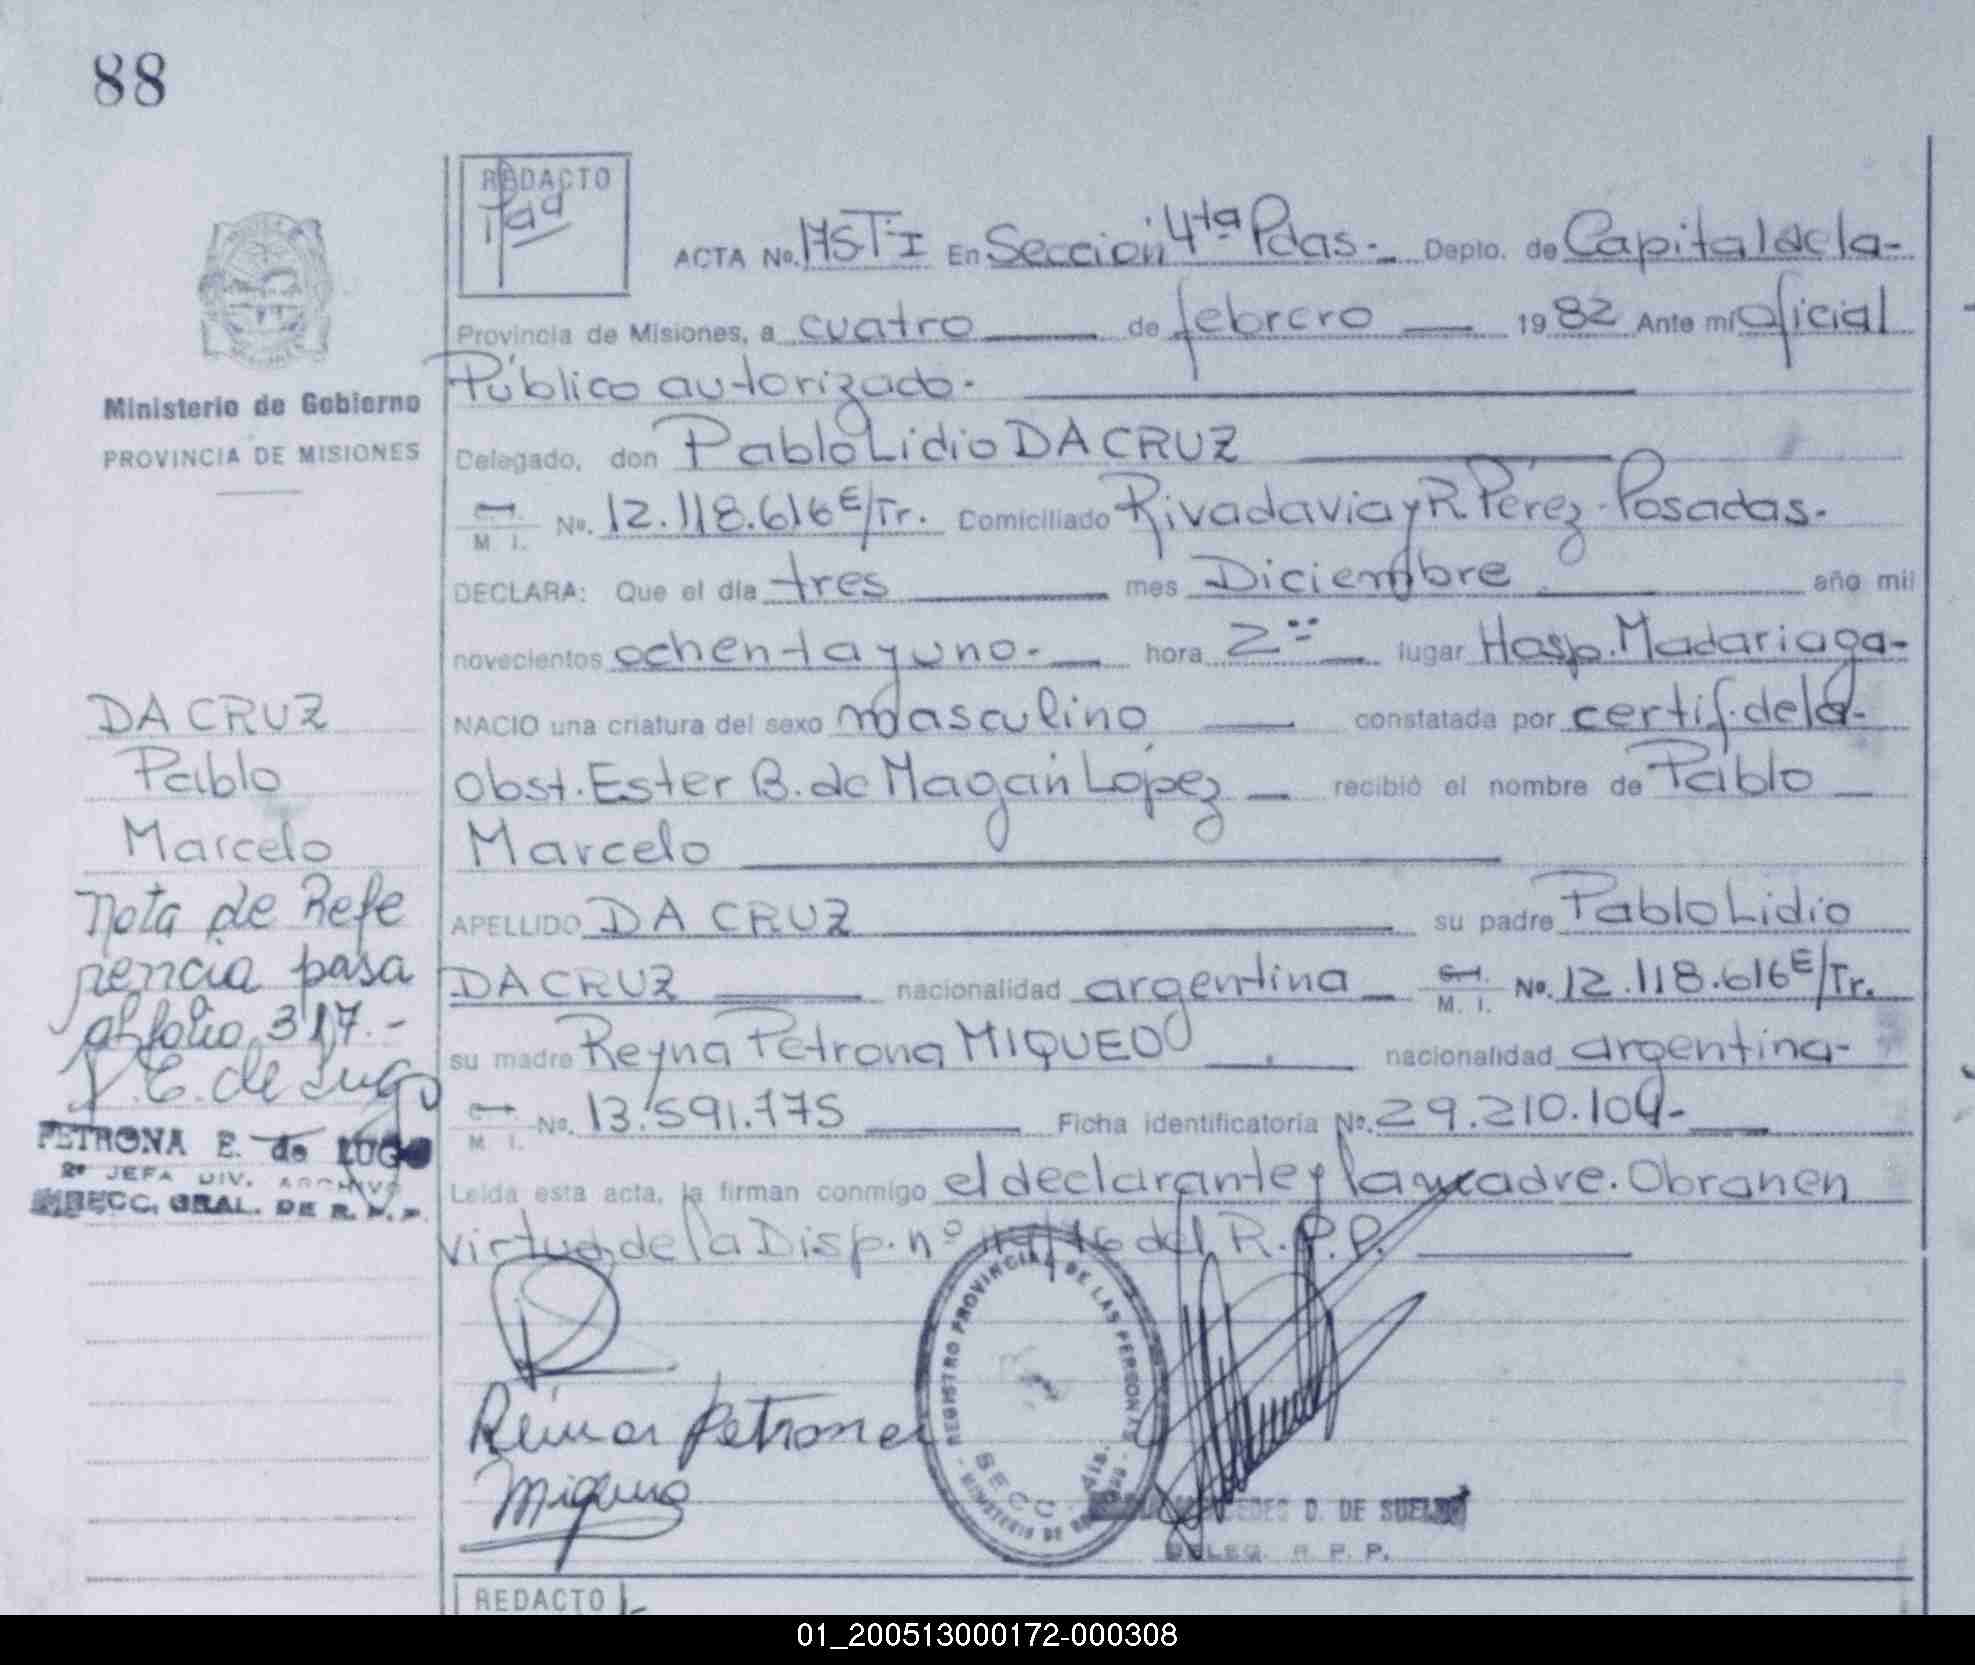 88
REDACTO
ACTA No. 175-T-I En Sección 4ta Pdas.- Depto. de Capital de la-
Provincia de Misiones, a cuatro de febrero 1982 Ante mi Oficial
Público autorizado.-
Ministerio de Gobierno
PROVINCIA DE MISIONES
Delegado, don Pablo Lidio DA CRUZ
M. I. No. 12.118.616 E/Tr. Domiciliado Rivadavia y R. Pérez - Posadas.
DECLARA: Que el día tres mes Diciembre año mil
novecientos ochenta y uno.- hora 2 lugar Hosp. Madariaga-
NACIO una criatura del sexo masculino constatada por certif. de la-
Obst. Ester B. de Magan López recibió el nombre de Pablo
Marcelo
APELLIDO DA CRUZ su padre Pablo Lidio
DA CRUZ nacionalidad argentina M. I. No. 12.118.616 E/Tr.
su madre Reyna Petrona MIQUEO nacionalidad argentina-
M. I. No. 13.591.775 Ficha identificatoria No. 29.210.104-
Leída esta acta, la firman conmigo el declarante y la madre. Obran en
virtud de la Disp. nº del R.P.P.
DA CRUZ
Pablo
Marcelo
Nota de Refe
rencia pasa
al folio 317.-
P. E. de Lugo
PETRONA E. de LUGO
2º JEFA DIV. ARCHIVO
DIRECC. GRAL. DE R. P. P.
Reina Petrona
Miqueo
REGISTRO PROVINCIAL DE LAS PERSONAS
SECC.
MINISTERIO DE
MERCEDES D. DE SUELDO
DELEG. R. P. P.
REDACTO
01_200513000172-000308